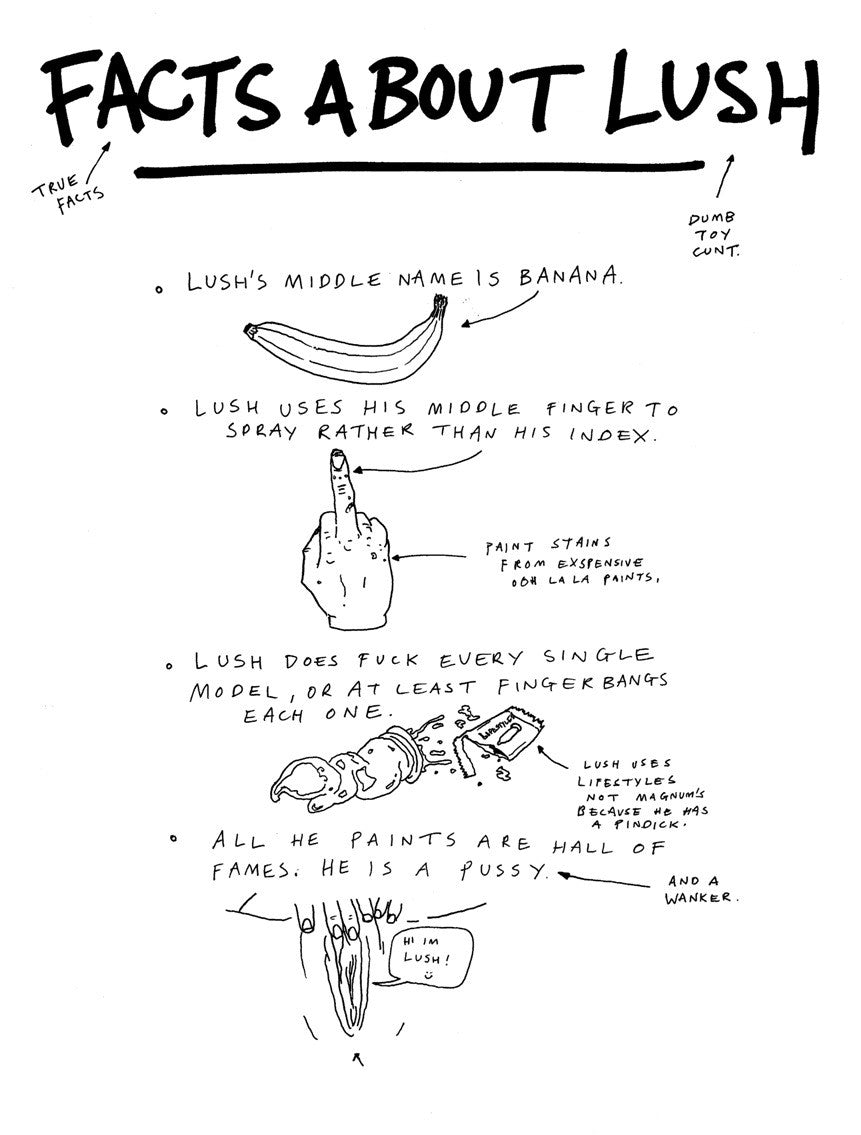 FACTS ABOUT LUSH
TRUE
FACTS
DUMB
TOY
CUNT.
LUSH'S MIDDLE NAME IS BANANA.
LUSH USES HIS MIDDLE FINGER TO
SPRAY RATHER THAN HIS INDEX.
PAINT STAINS
FROM EXSPENSIVE
OOH LA LA PAINTS,
LUSH DOES FUCK EVERY SINGLE
MODEL, OR AT LEAST FINGERBANGS
EACH ONE.
LIFESTYLES
LUSH USES
LIFESTYLES
NOT MAGNUM'S
BECAUSE HE HAS
A PINDICK.
ALL HE PAINTS ARE HALL OF
FAMES. HE IS A PUSSY.
AND A
WANKER.
HI IM
LUSH!